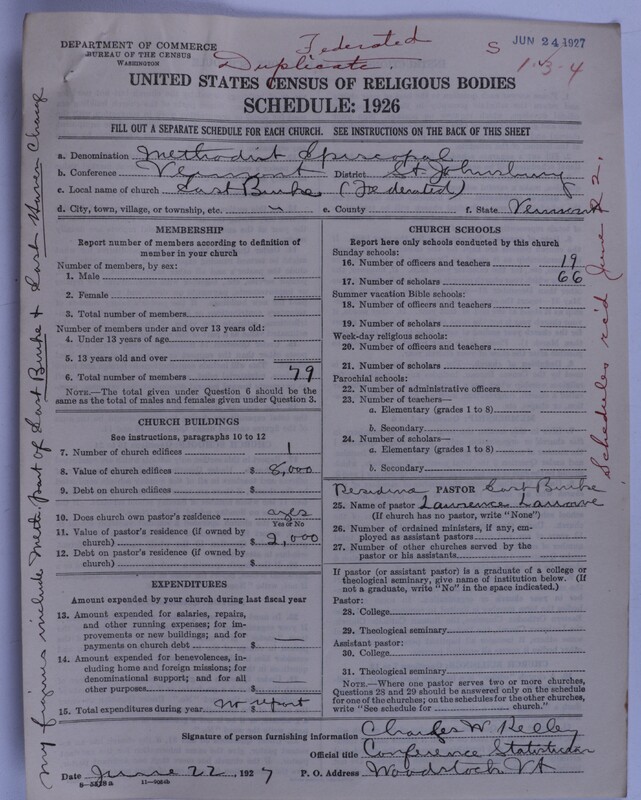 DEPARTMENT OF COMMERCE
BUREAU OF THE CENSUS
WASHINGTON
Federated
Duplicate.
S JUN 24 1927
1-3-4
UNITED STATES CENSUS OF RELIGIOUS BODIES
SCHEDULE: 1926
FILL OUT A SEPARATE SCHEDULE FOR EACH CHURCH. SEE INSTRUCTIONS ON THE BACK OF THIS SHEET
a. Denomination Methodist Episcopal
b. Conference Vermont District St Johnsbury
c. Local name of church East Burke (Federated)
d. City, town, village, or township, etc. " e. County f. State Vermont
MEMBERSHIP
Report number of members according to definition of
member in your church
Number of members, by sex:
1. Male
2. Female
3. Total number of members
Number of members under and over 13 years old:
4. Under 13 years of age
5. 13 years old and over
6. Total number of members 79
NOTE.—The total given under Question 6 should be
same as the total of males and females given under Question 3.
CHURCH BUILDINGS
See instructions, paragraphs 10 to 12
7. Number of church edifices 1
8. Value of church edifices $ 8,000
9. Debt on church edifices $
10. Does church own pastor's residence yes
Yes or No
11. Value of pastor's residence (if owned by
church) $ 2,000
12. Debt on pastor's residence (if owned by
church) $
EXPENDITURES
Amount expended by your church during last fiscal year
13. Amount expended for salaries, repairs,
and other running expenses; for im-
provements or new buildings; and for
payments on church debt $ —
14. Amount expended for benevolences, in-
cluding home and foreign missions; for
denominational support; and for all
other purposes $ —
15. Total expenditures during year $ no report
CHURCH SCHOOLS
Report here only schools conducted by this church
Sunday schools:
16. Number of officers and teachers 19
17. Number of scholars 66
Summer vacation Bible schools:
18. Number of officers and teachers
19. Number of scholars
Week-day religious schools:
20. Number of officers and teachers
21. Number of scholars
Parochial schools:
22. Number of administrative officers
23. Number of teachers—
a. Elementary (grades 1 to 8)
b. Secondary
24. Number of scholars—
a. Elementary (grades 1 to 8)
b. Secondary
PASTOR East Burke
25. Name of pastor Lawrence
(If church has no pastor, write "None")
26. Number of ordained ministers, if any, em-
ployed as assistant pastors
27. Number of other churches served by the
pastor or his assistants
If pastor (or assistant pastor) is a graduate of a college or
theological seminary, give name of institution below. (If
not a graduate, write "No" in the space indicated.)
Pastor:
28. College
29. Theological seminary
Assistant pastor:
30. College
31. Theological seminary
NOTE.—Where one pastor serves two or more churches,
Questions 28 and 29 should be answered only on the schedule
for one of the churches; on the schedules for the other churches,
write "See schedule for church."
Signature of person furnishing information Charles W Kelley
Official title Conference Statistician
Date June 22, 1927 P. O. Address Woodstock Vt
8-5528a 11-
My figures include Meth. part of East Burke & East Haven Charge
Schedules rec'd June 22.